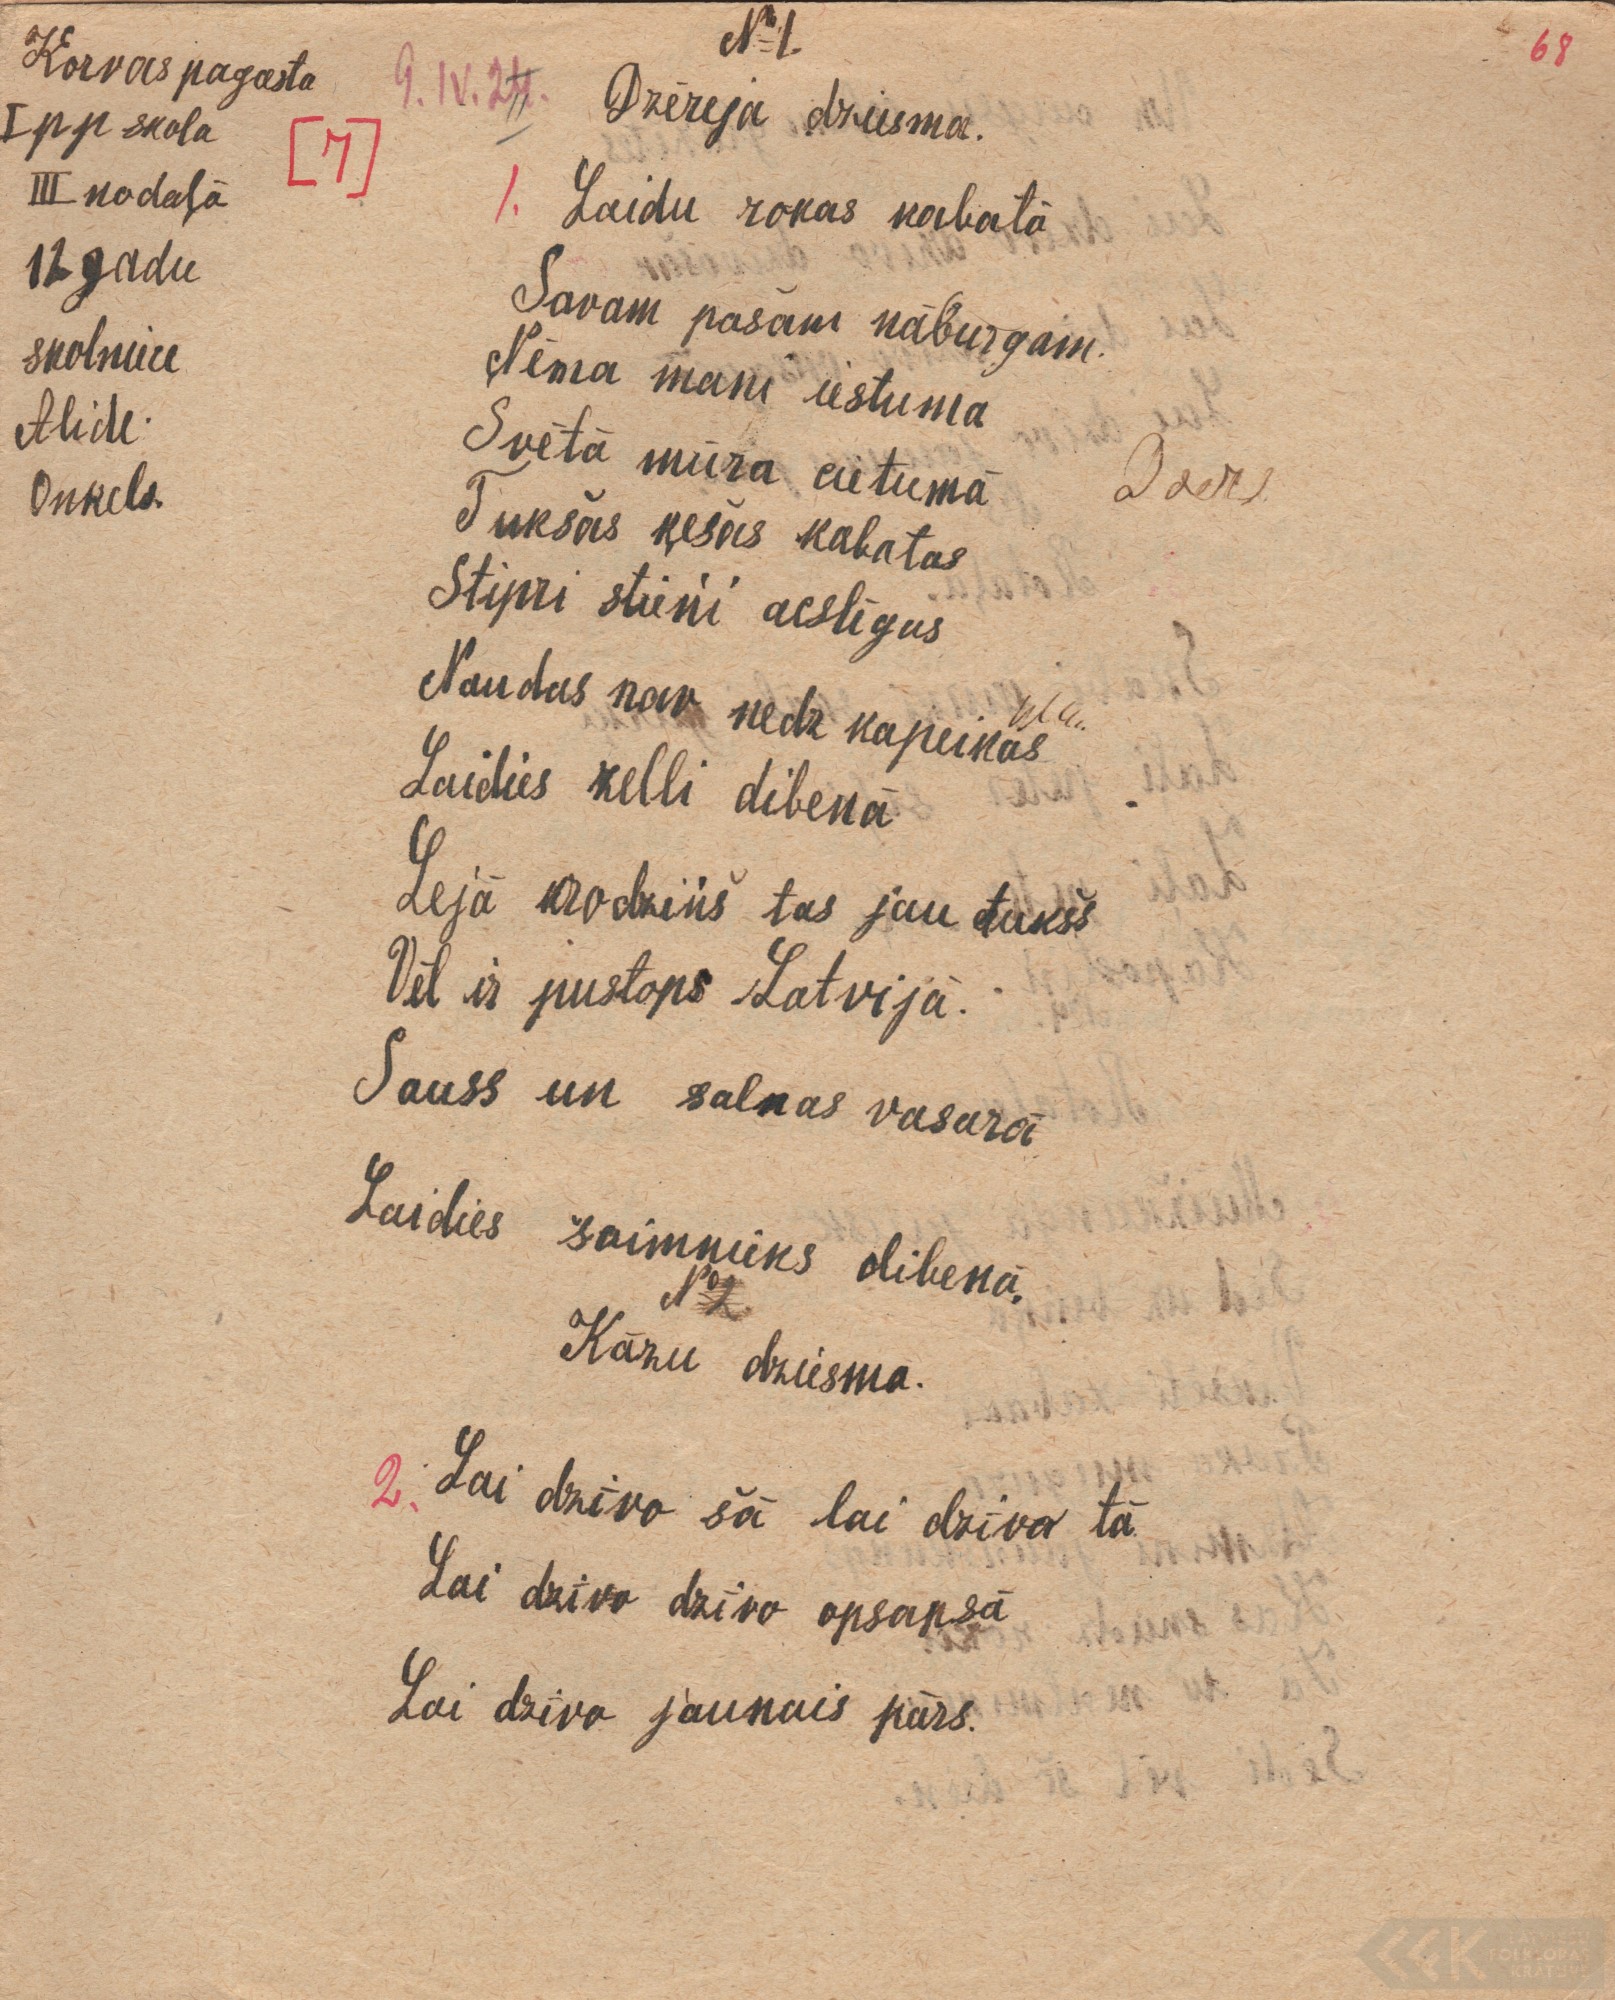 68
Korvas pagasta
I p p skola
III nodaļā
12 gadu
skolniece
Alide
Onkels.
[7]
9. IV. 24.
№ 1.
Dzērēja dziesma.
1. Laidu rokas kabatā
Savam pašam nāburgam.
Ņēma mani iestuma
Svētā mūra cietumā
Tukšās ķešās kabatas
Stipri stieņi aeslēgas
Naudas nav nedz kapeikas
Laidies zelli dibenā
Lejā krodziņš tas jau tukšs
Vēl ir pustops Latvijā.
Sauss un salnas vasarā
Laidies saimnieks dibenā.
№ 2
Kāzu dziesma.
2. Lai dzīvo šā lai dzīvo tā
Lai dzīvo dzīvo opsapsā
Lai dzīvo jaunais pārs.
LATVIEŠU
FOLKLORAS
KRĀTUVE